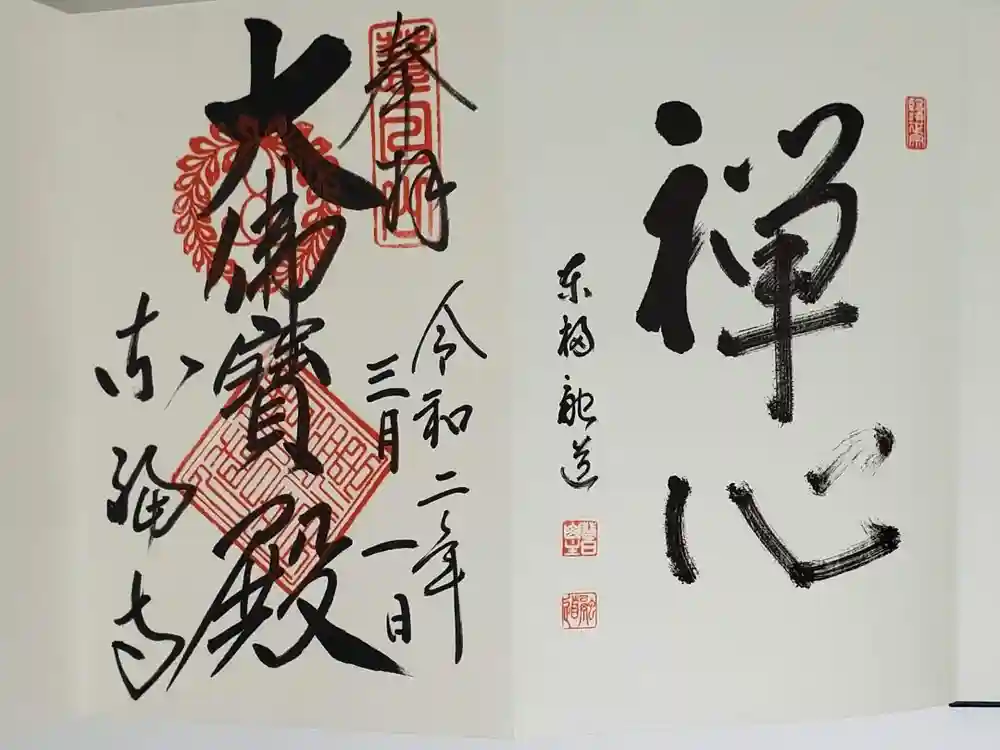 禅心
東福融道
奉拝
慧日山
令和二年
三月一日
大佛寶殿
東福寺